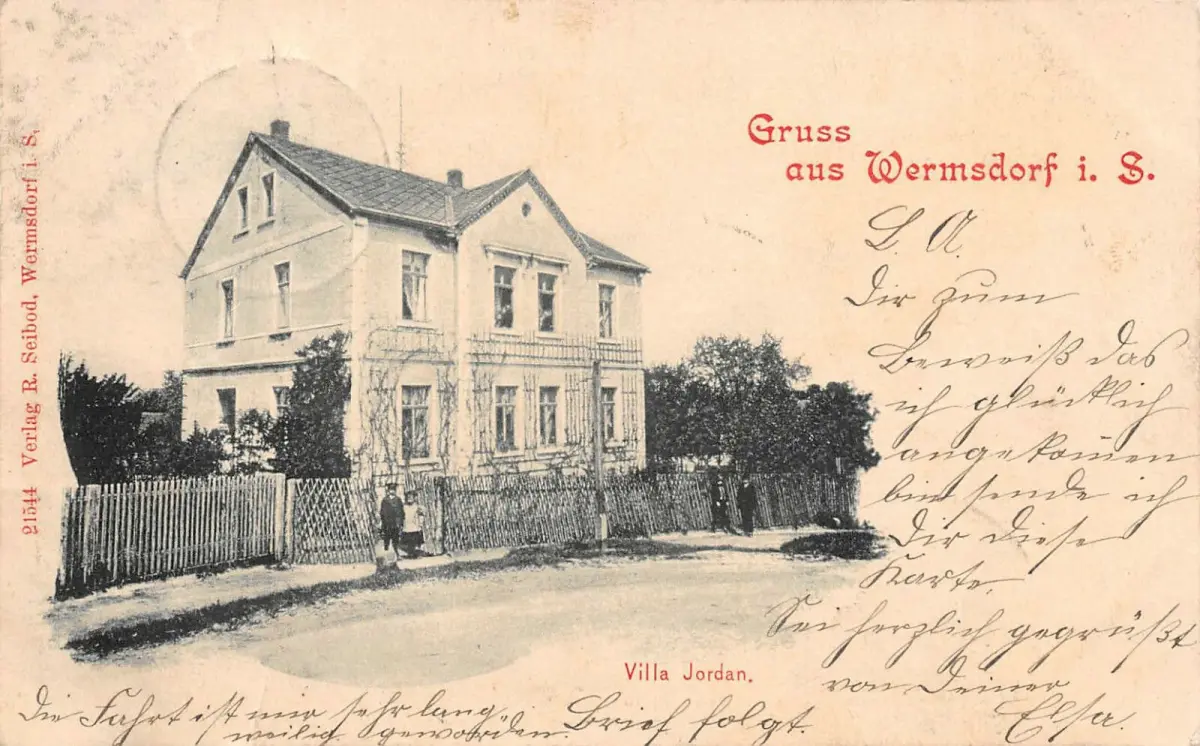 Gruss
aus Wermsdorf i. S.
L. A.
Dir zum
Beweiß das
ich glücklich
angekom̅en
bin sende ich
Dir diese
Karte,
Sei herzlich gegrüßt
von Deiner
Elsa.
Villa Jordan.
Die Fahrt ist mir sehr lang
weilig geworden.
Brief folgt.
21544 Verlag R. Seibod, Wermsdorf i. S.